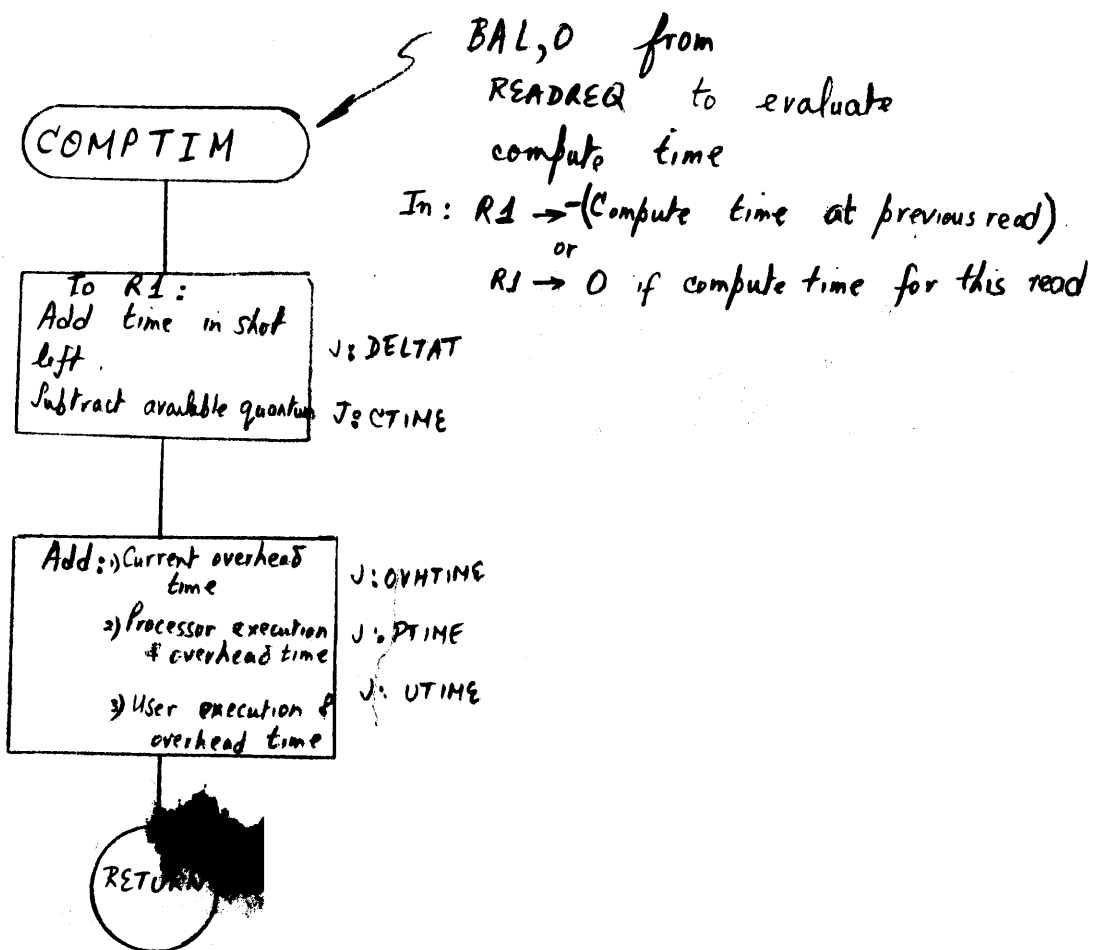 BAL,0 from
READREQ to evaluate
compute time
In: R1 → -(Compute time at previous read)
or
R1 → 0 if compute time for this read
COMPTIM
To R1:
Add time in shot
left.
Subtract available quantum
J:DELTAT
J:CTIME
Add: 1) Current overhead
time
2) Processor execution
& overhead time
3) User execution &
overhead time
J:OVHTIME
J:PTIME
J:UTIME
RETURN